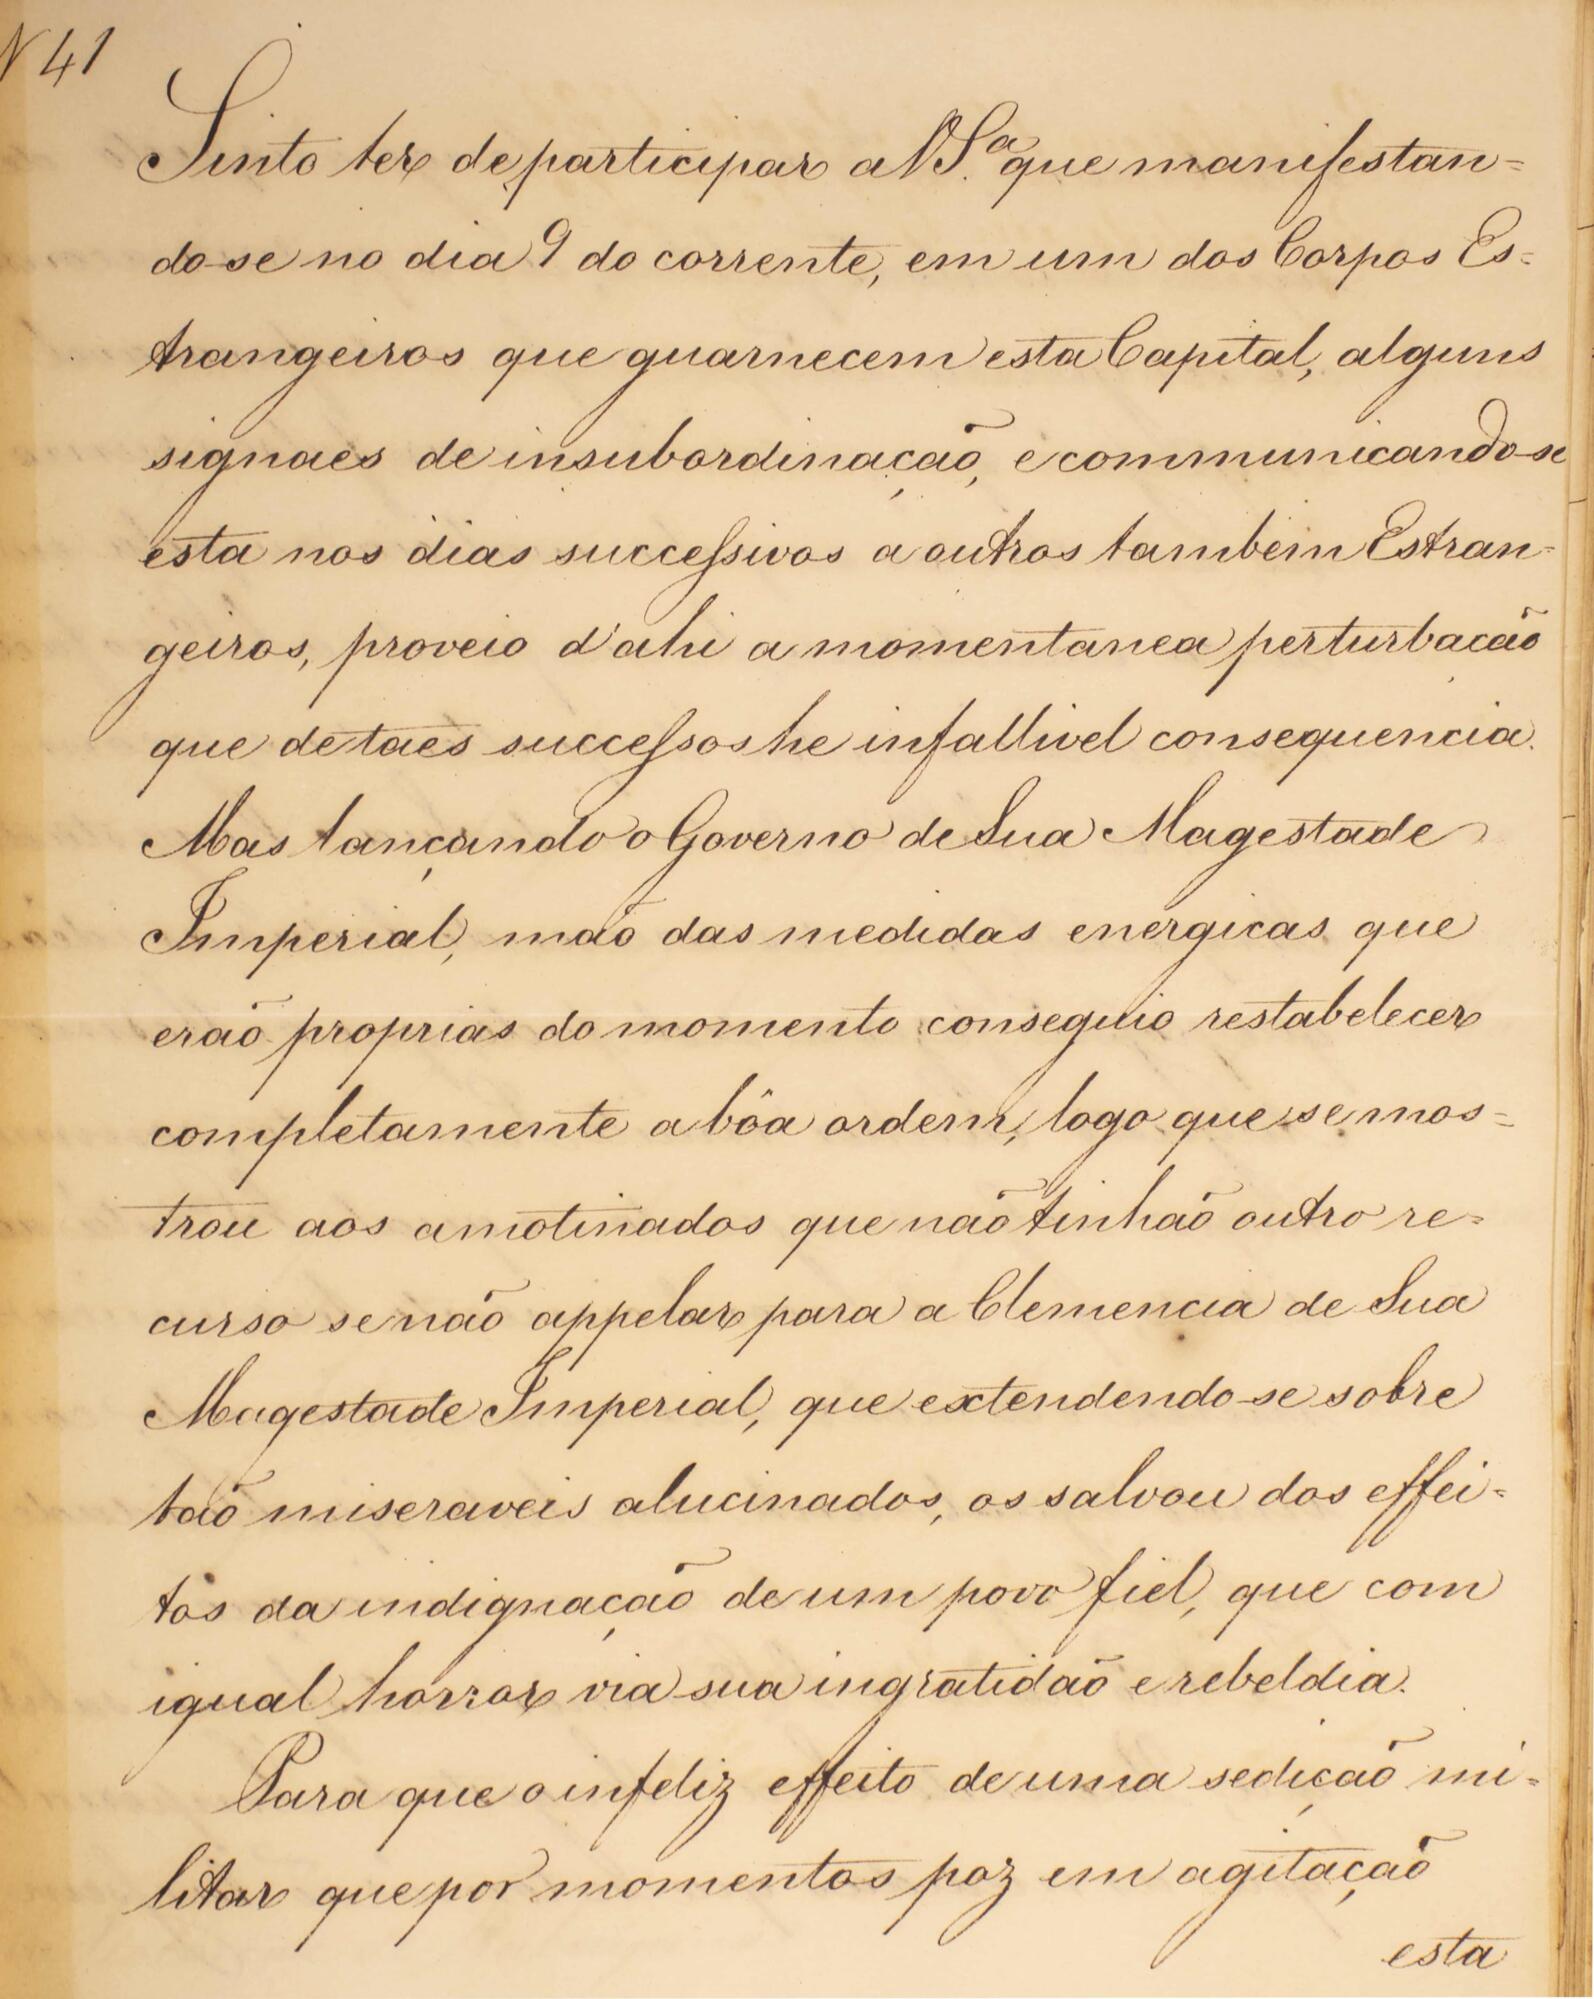 N 41
Sinto ter de participar a V Sª. que manifestan=
do-se no dia 9 do corrente, em um dos Corpos Es=
trangeiros que guarnecem esta Capital, alguns
signaes de insubordinação, e communicando-se
esta nos dias successivos a outros tambem Estran=
geiros, proveio d'ahi a momentanea perturbação
que de taes successos he infallivel consequencia.
Mas lançando o Governo de Sua Magestade
Imperial, mão das medidas energicas que
erão proprias do momento conseguio restabelecer
completamente a bôa ordem, logo que se mos=
trou aos amotinados que não tinhão outro re=
curso senão appelar para a Clemencia de Sua
Magestade Imperial, que extendendo-se sobre
tão miseraveis alucinados, os salvou dos effei=
tos da indignação de um povo fiel, que com
igual horror via sua ingratidão e rebeldia.
Para que o infeliz effeito de uma sedição mi=
litar que por momentos poz em agitação
esta